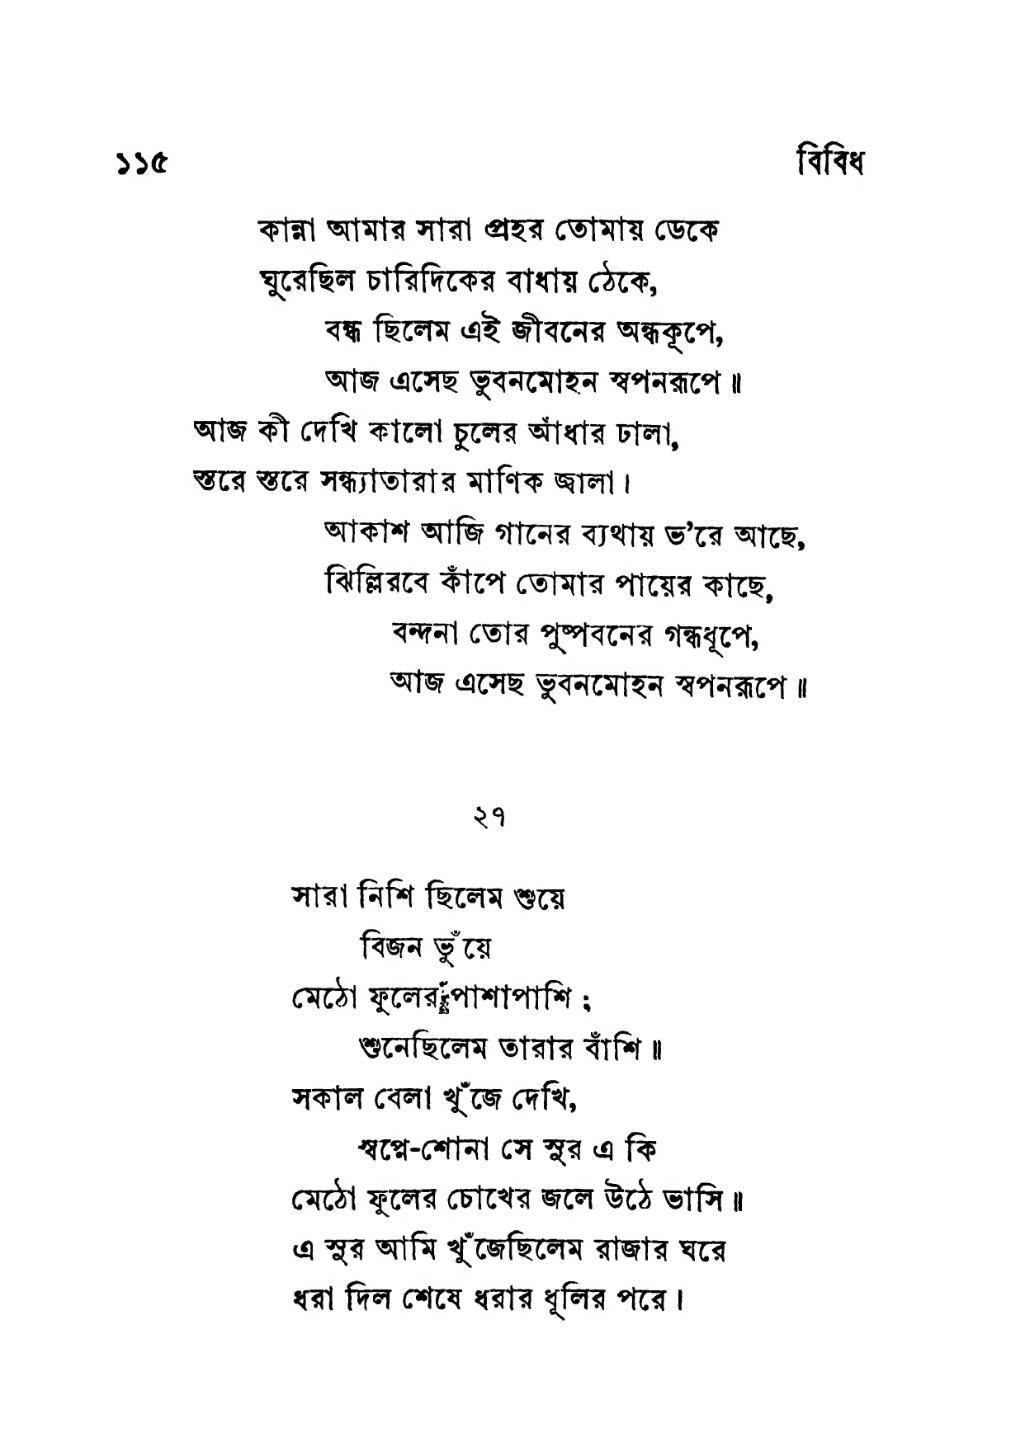 ১১৫ বিবিধ
কান্না আমার সারা প্রহর তোমায় ডেকে
ঘুরেছিল চারিদিকের বাধায় ঠেকে,
বন্ধ ছিলেম এই জীবনের অন্ধকূপে,
আজ এসেছ ভুবনমোহন স্বপনরূপে॥
আজ কী দেখি কালো চুলের আঁধার ঢালা,
স্তরে স্তরে সন্ধ্যাতারার মাণিক জ্বালা।
আকাশ আজি গানের ব্যথায় ভ'রে আছে,
ঝিল্লিরবে কাঁপে তোমার পায়ের কাছে,
বন্দনা তোর পুষ্পবনের গন্ধধূপে,
আজ এসেছ ভুবনমোহন স্বপনরূপে॥
২৭
সারা নিশি ছিলেম শুয়ে
বিজন ভুঁয়ে
মেঠো ফুলের পাশাপাশি;
শুনেছিলেম তারার বাঁশি॥
সকাল বেলা খুঁজে দেখি,
স্বপ্নে-শোনা সে সুর এ কি
মেঠো ফুলের চোখের জলে উঠে ভাসি॥
এ সুর আমি খুঁজেছিলেম রাজার ঘরে
ধরা দিল শেষে ধরার ধূলির পরে।